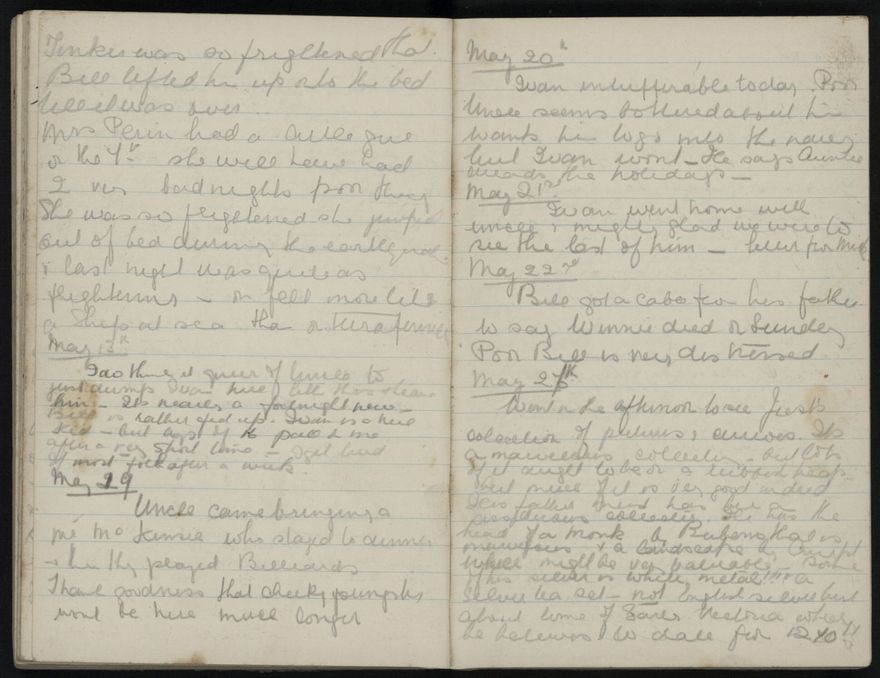 Tinker was so frightened that
Bill lifted him up onto the bed
till it was over.
Mrs Perin had a
on the 4th she will have had
2 very bad nights poor thing
She was so frightened she jumped
out of bed during the earthquake
& last night was quite as
frightening - on fell more like
a ship at sea than on terra firma
May 13th
I do think it queer of Uncle to
just dump Ivan here & let him
him - Its nearly a fortnight now -
Bill is rather fed up. Ivan is a nice
kid - but
after a very short time - I get tired
of most folk after a week
May 19
Uncle came bringing a
Mr McKenzie who stayed to dinner
& then they played Billiards
Thank goodness that cheeky youngster
wont be here much longer
May 20th
Ivan insufferable today. Poor
Uncle seems bothered about him
wants him to go into the navy
but Ivan wont - He says Auntie
the holidays -
May 21st
Ivan went home with
uncle & mighty glad we were to
see the last of him -
May 22nd
Bill got a cable from his father
to say Winnie died on Sunday
Poor Bill is very distressed
May 25th
Went in the afternoon to see
collection of pictures & curios. Its
a marvellous collection - but lots
of it ought to be on a rubbish heap -
but much of it is very good indeed
His father must have been a
collector. He has the
head of a Monk by Rubens that is
marvellous & a landscape by
which might be very valuable - Some
of his silver is white metal!!! & a
silver tea set - not English silver but
about time of Queen Victoria which
he believes to date from 1240!!